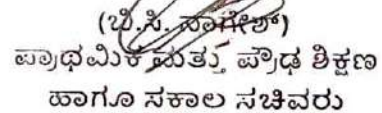 (ಬಿ.ಸಿ. ನಾಗೇಶ್)
ಪ್ರಾಥಮಿಕ ಮತ್ತು ಪ್ರೌಢ ಶಿಕ್ಷಣ
ಹಾಗೂ ಸಕಾಲ ಸಚಿವರು